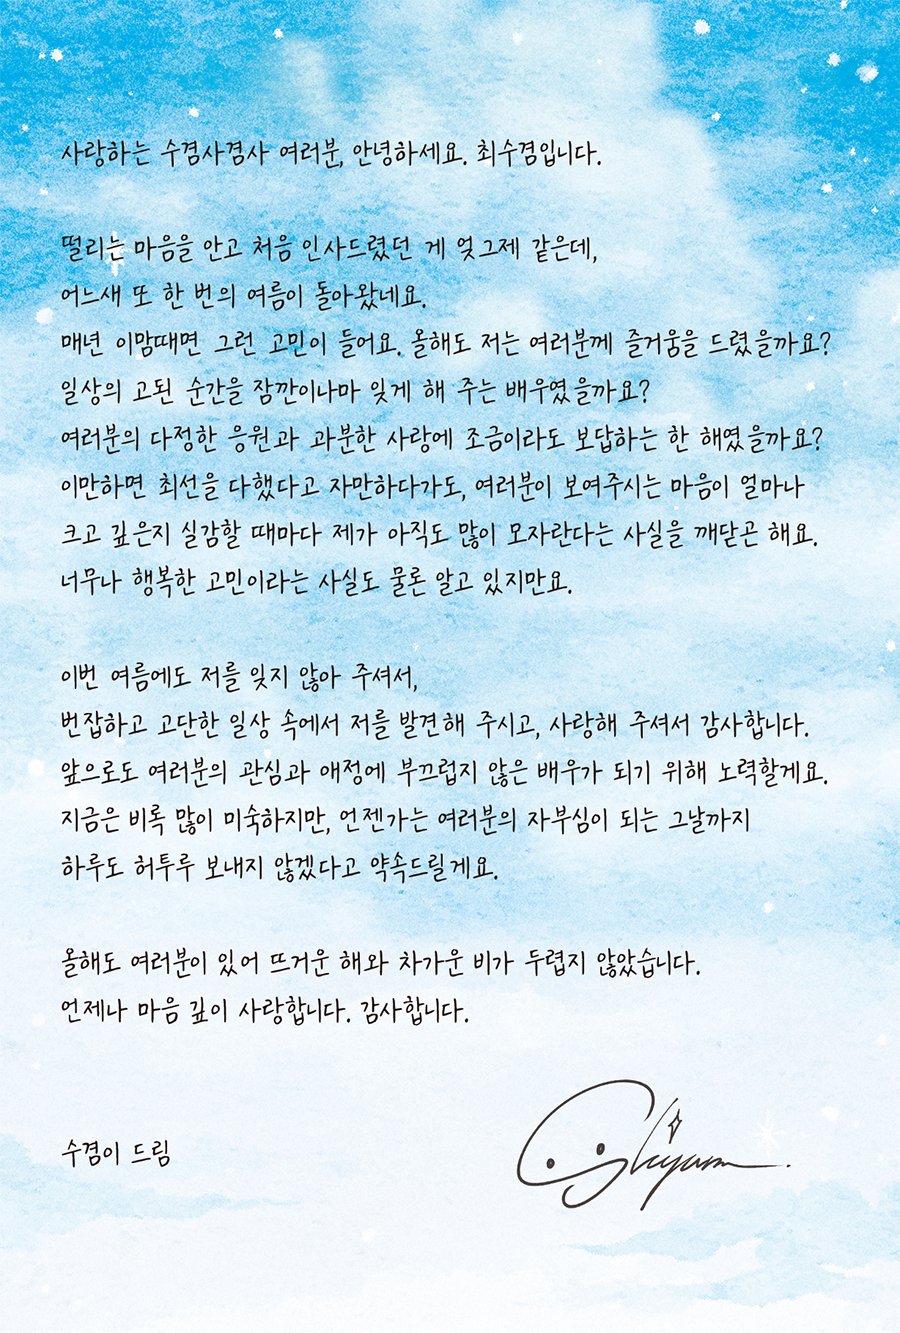 사랑하는 수겸사겸사 여러분, 안녕하세요. 최수겸입니다.
떨리는 마음을 안고 처음 인사드렸던 게 엊그제 같은데,
어느새 또 한 번의 여름이 돌아왔네요.
매년 이맘때면 그런 고민이 들어요. 올해도 저는 여러분께 즐거움을 드렸을까요?
일상의 고된 순간을 잠깐이나마 잊게 해 주는 배우였을까요?
여러분의 다정한 응원과 과분한 사랑에 조금이라도 보답하는 한 해였을까요?
이만하면 최선을 다했다고 자만하다가도, 여러분이 보여주시는 마음이 얼마나
크고 깊은지 실감할 때마다 제가 아직도 많이 모자란다는 사실을 깨닫곤 해요.
너무나 행복한 고민이라는 사실도 물론 알고 있지만요.
이번 여름에도 저를 잊지 않아 주셔서,
번잡하고 고단한 일상 속에서 저를 발견해 주시고, 사랑해 주셔서 감사합니다.
앞으로도 여러분의 관심과 애정에 부끄럽지 않은 배우가 되기 위해 노력할게요.
지금은 비록 많이 미숙하지만, 언젠가는 여러분의 자부심이 되는 그날까지
하루도 허투루 보내지 않겠다고 약속드릴게요.
올해도 여러분이 있어 뜨거운 해와 차가운 비가 두렵지 않았습니다.
언제나 마음 깊이 사랑합니다. 감사합니다.
수겸이 드림